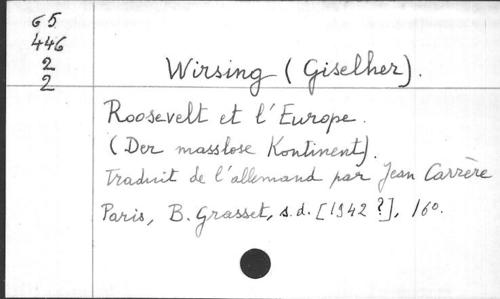 G 5
446
2
2
Wirsing (Giselher).
Roosevelt et l'Europe.
(Der masslose Kontinent).
Traduit de l'allemand par Jean Carrère
Paris, B. Grasset, s.d. [1942 ?], 16o.